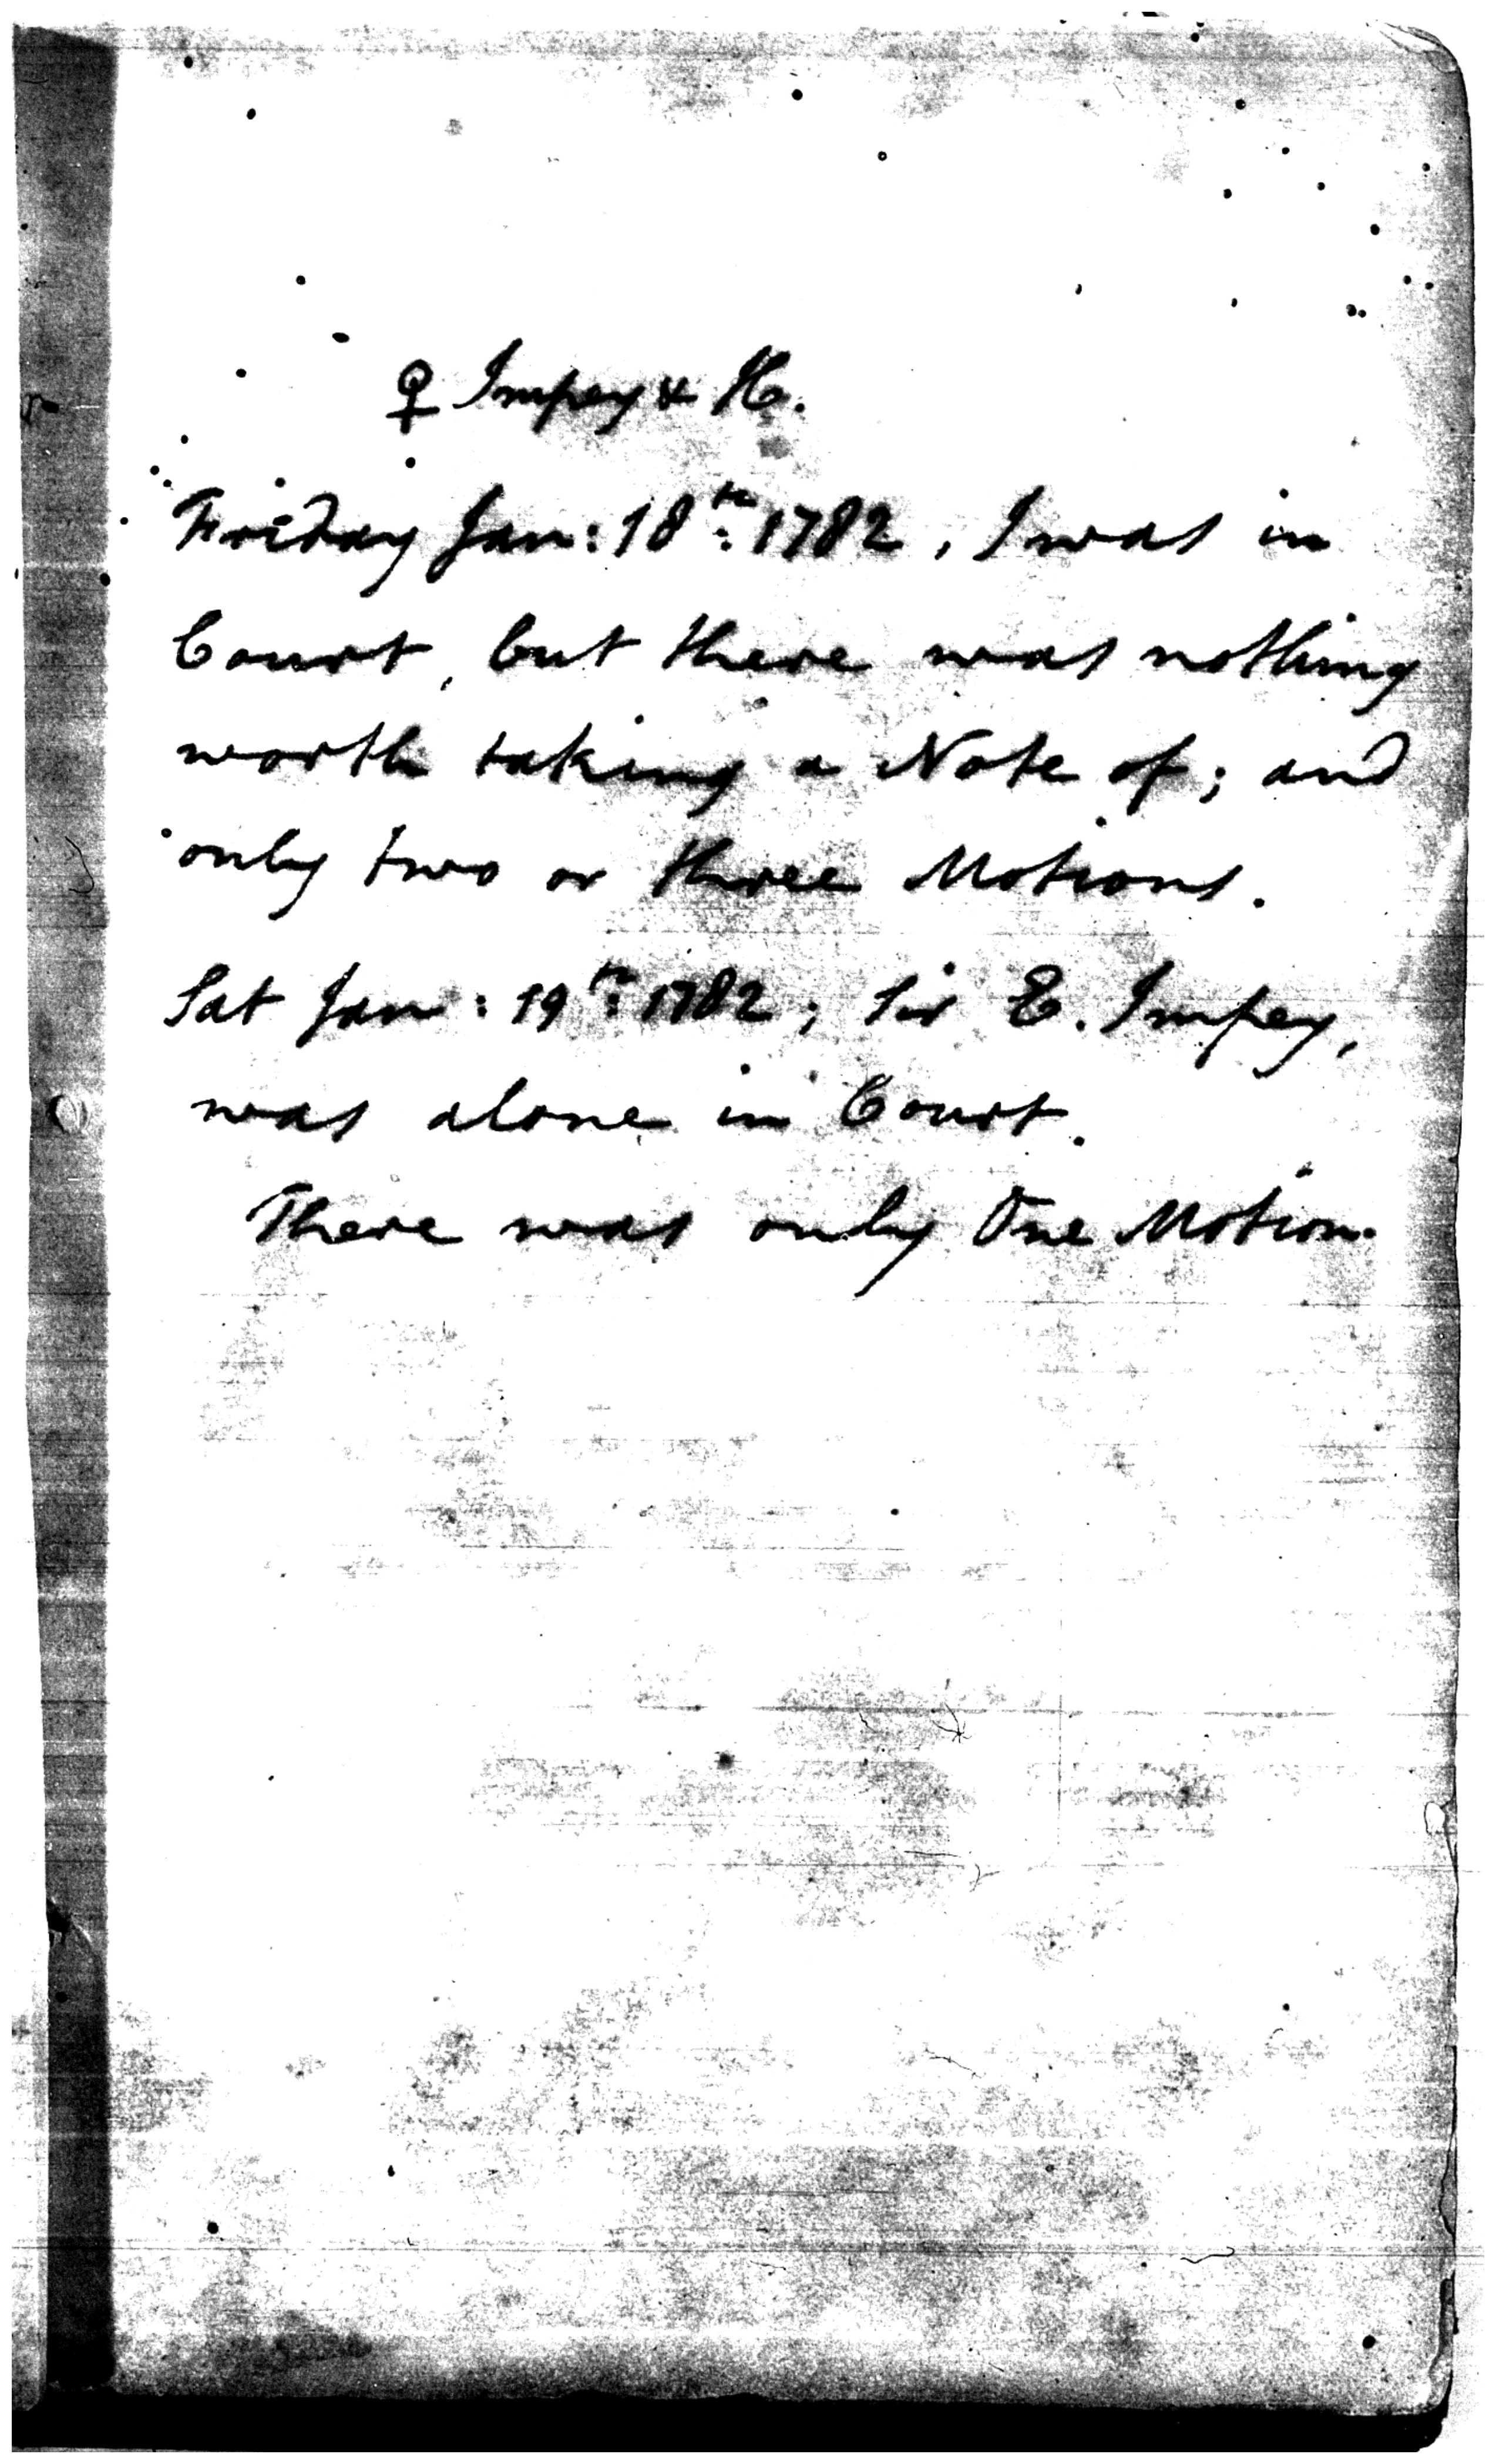 ♀ Impey & H.
Friday Jan: 18th: 1782, I was in
Court, but there was nothing
worth taking a Note of; and
only two or three Motions.
Sat Jan: 19th: 1782; Sir E. Impey,
was alone in Court.
There was only One Motion.